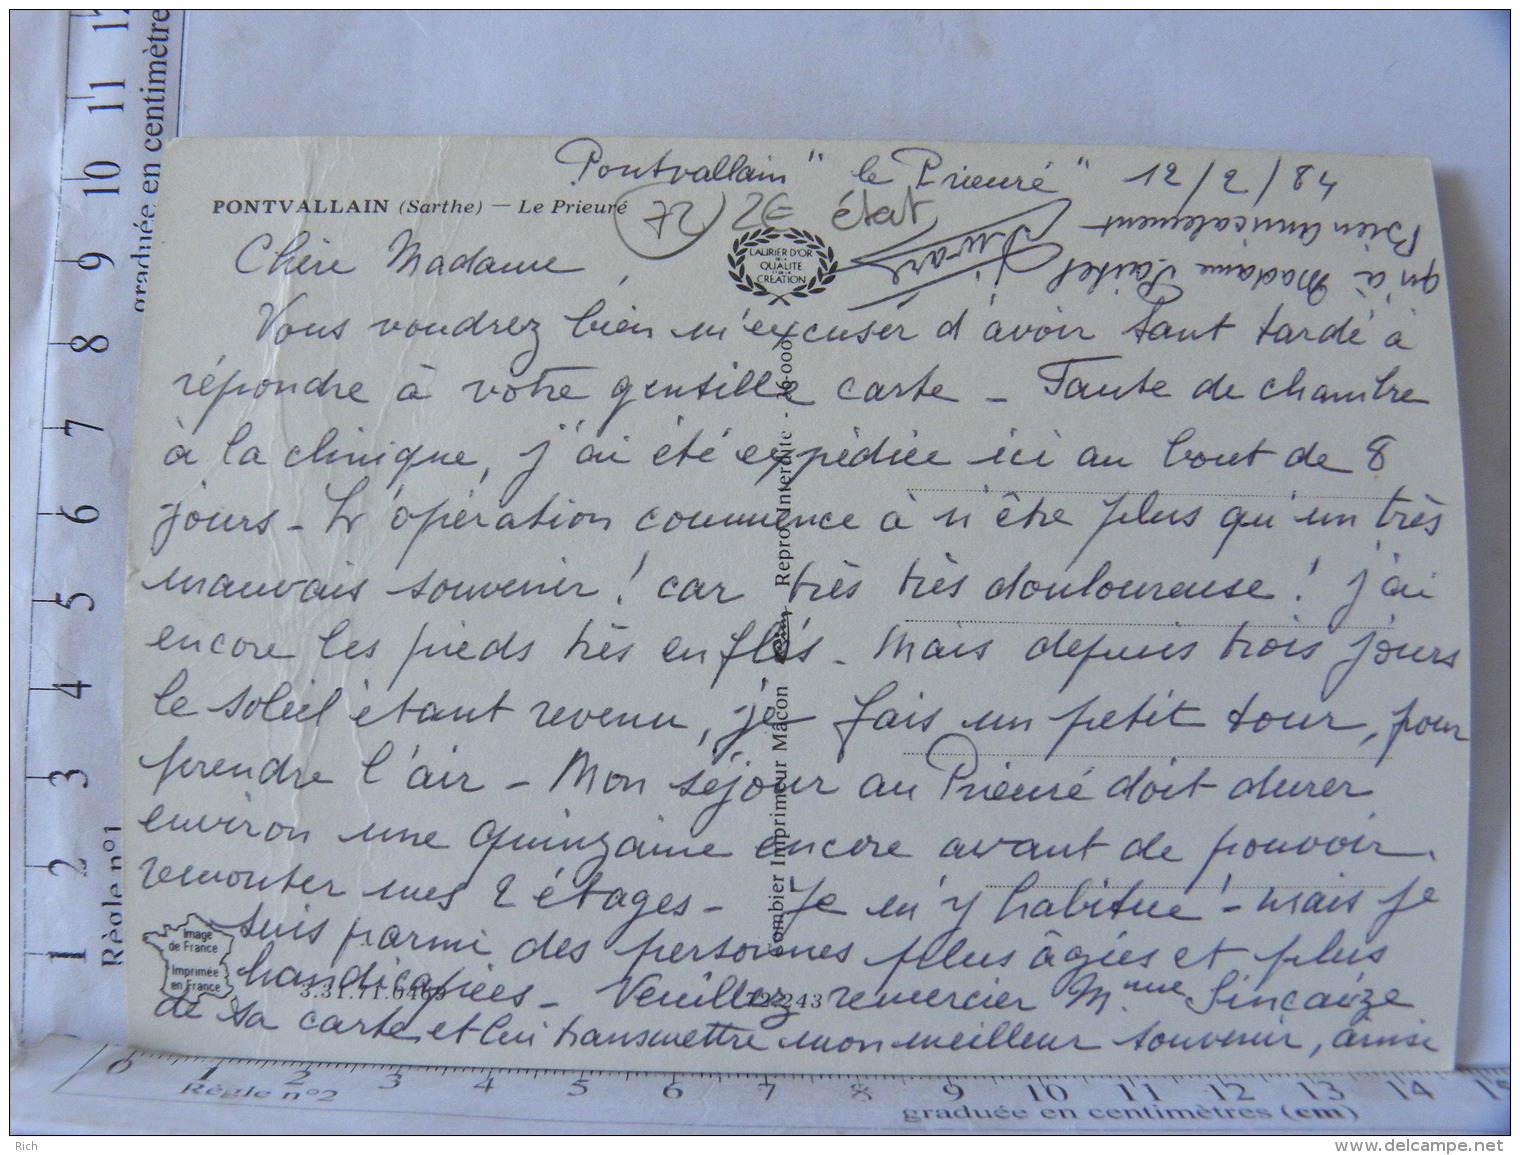 Pontvallain " le Prieuré " 12/2/84
PONTVALLAIN (Sarthe) — Le Prieuré
72 2€ état
LAURIER D'OR
DE LA
QUALITÉ
ET DE LA
CRÉATION
Chère Madame,
Vous voudrez bien m'excuser d'avoir tant tardé à
répondre à votre gentille carte - Faute de chambre
à la clinique, j'ai été expédiée ici au bout de 8
jours - L'opération commence à n'être plus qu'un très
mauvais souvenir ! car très très douloureuse ! j'ai
encore les pieds très enflés - Mais depuis trois jours
le soleil étant revenu, je fais un petit tour, pour
prendre l'air - Mon séjour au Prieuré doit durer
environ une quinzaine encore avant de pouvoir
remonter mes 2 étages - Je m'y habitue ! - mais je
suis parmi des personnes plus âgées et plus
handicapées - Veuillez remercier Mme Sincaize
de sa carte et lui transmettre mon meilleur souvenir, ainsi
qu'à Madame
Bien Amicalement
Combier Imprimeur Mâcon Reprod. Interdite - 36.000
Image
de France
Imprimée
en France
3.31.71.0469
72 243
Règle n°1 graduée en centimètre
1 2 3 4 5 6 7 8 9 10 11 12
0 1 2 3 4 5 6 7 8 9 10 11 12 13 14 15
Règle n°2 graduée en centimètres (cm)
Rich
www.delcampe.net